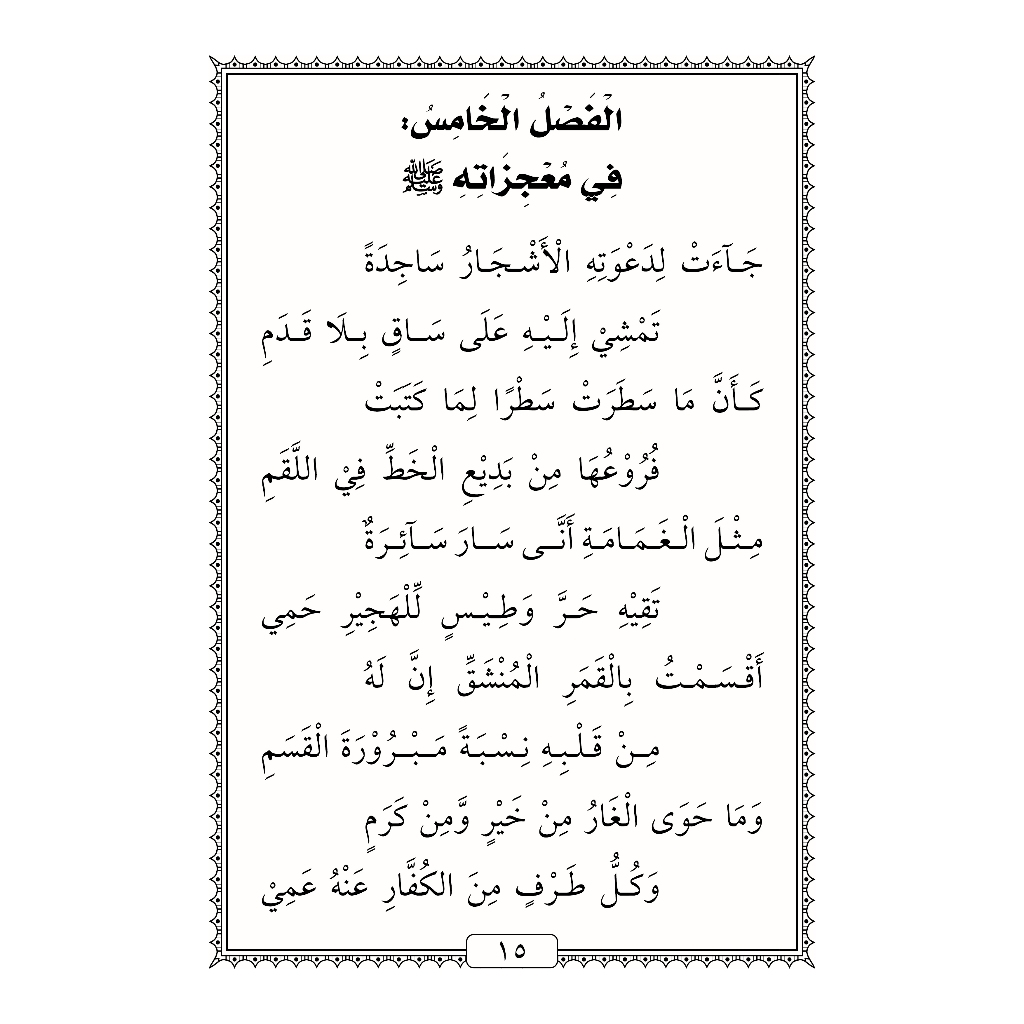 الْفَصْلُ الْخَامِسُ:
فِي مُعْجِزَاتِهِ ﷺ
جَآءَتْ لِدَعْوَتِهِ الْأَشْجَارُ سَاجِدَةً
تَمْشِيْ إِلَيْهِ عَلَى سَاقٍ بِلَا قَدَمِ
كَأَنَّ مَا سَطَرَتْ سَطْرًا لِمَا كَتَبَتْ
فُرُوْعُهَا مِنْ بَدِيْعِ الْخَطِّ فِيْ اللَّقَمِ
مِثْلَ الْغَمَامَةِ أَنَّى سَارَ سَآئِرَةٌ
تَقِيْهِ حَرَّ وَطِيْسٍ لِّلْهَجِيْرِ حَمِي
أَقْسَمْتُ بِالْقَمَرِ الْمُنْشَقِّ إِنَّ لَهُ
مِنْ قَلْبِهِ نِسْبَةً مَبْرُوْرَةَ الْقَسَمِ
وَمَا حَوَى الْغَارُ مِنْ خَيْرٍ وَّمِنْ كَرَمٍ
وَكُلُّ طَرْفٍ مِنَ الكُفَّارِ عَنْهُ عَمِيْ
١٥